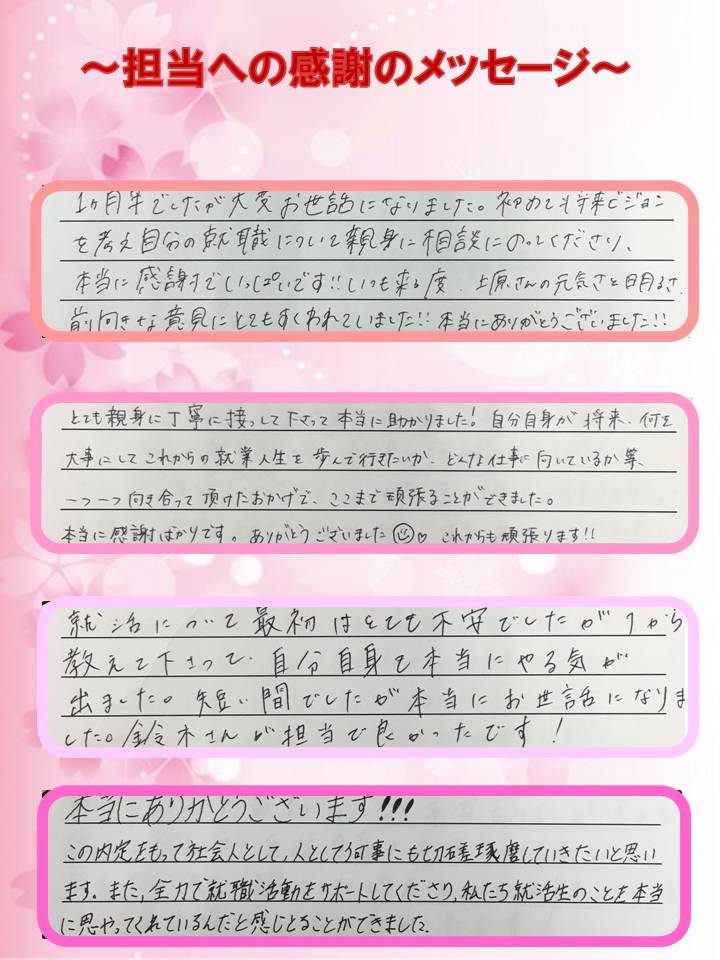 ～担当への感謝のメッセージ～
1ヶ月半でしたが大変お世話になりました。初めて将来ビジョン
を考え自分の就職について親身に相談にのってくださり、
本当に感謝でいっぱいです!!いつも来る度、上原さんの元気さと明るさ、
前向きな意見にとてもすくわれていました!!本当にありがとうございました!!
とても親身に丁寧に接して下さって本当に助かりました!自分自身が将来、何を
大事にしてこれからの就業人生を歩んで行きたいか、どんな仕事に向いているか等、
一つ一つ向き合って頂けたおかげで、ここまで頑張ることができました。
本当に感謝ばかりです。ありがとうございました☺♡ これからも頑張ります!!
就活について最初はとても不安でしたが1から
教えて下さって、自分自身で本当にやる気が
出ました。短い間でしたが本当にお世話になりま
した。鈴木さんが担当で良かったです!
本当にありがとうございます!!!
この内定をもって社会人として、人として何事にも切磋琢磨していきたいと思い
ます。また、全力で就職活動をサポートしてくださり、私たち就活生のことを本当
に思やってくれているんだと感じとることができました。